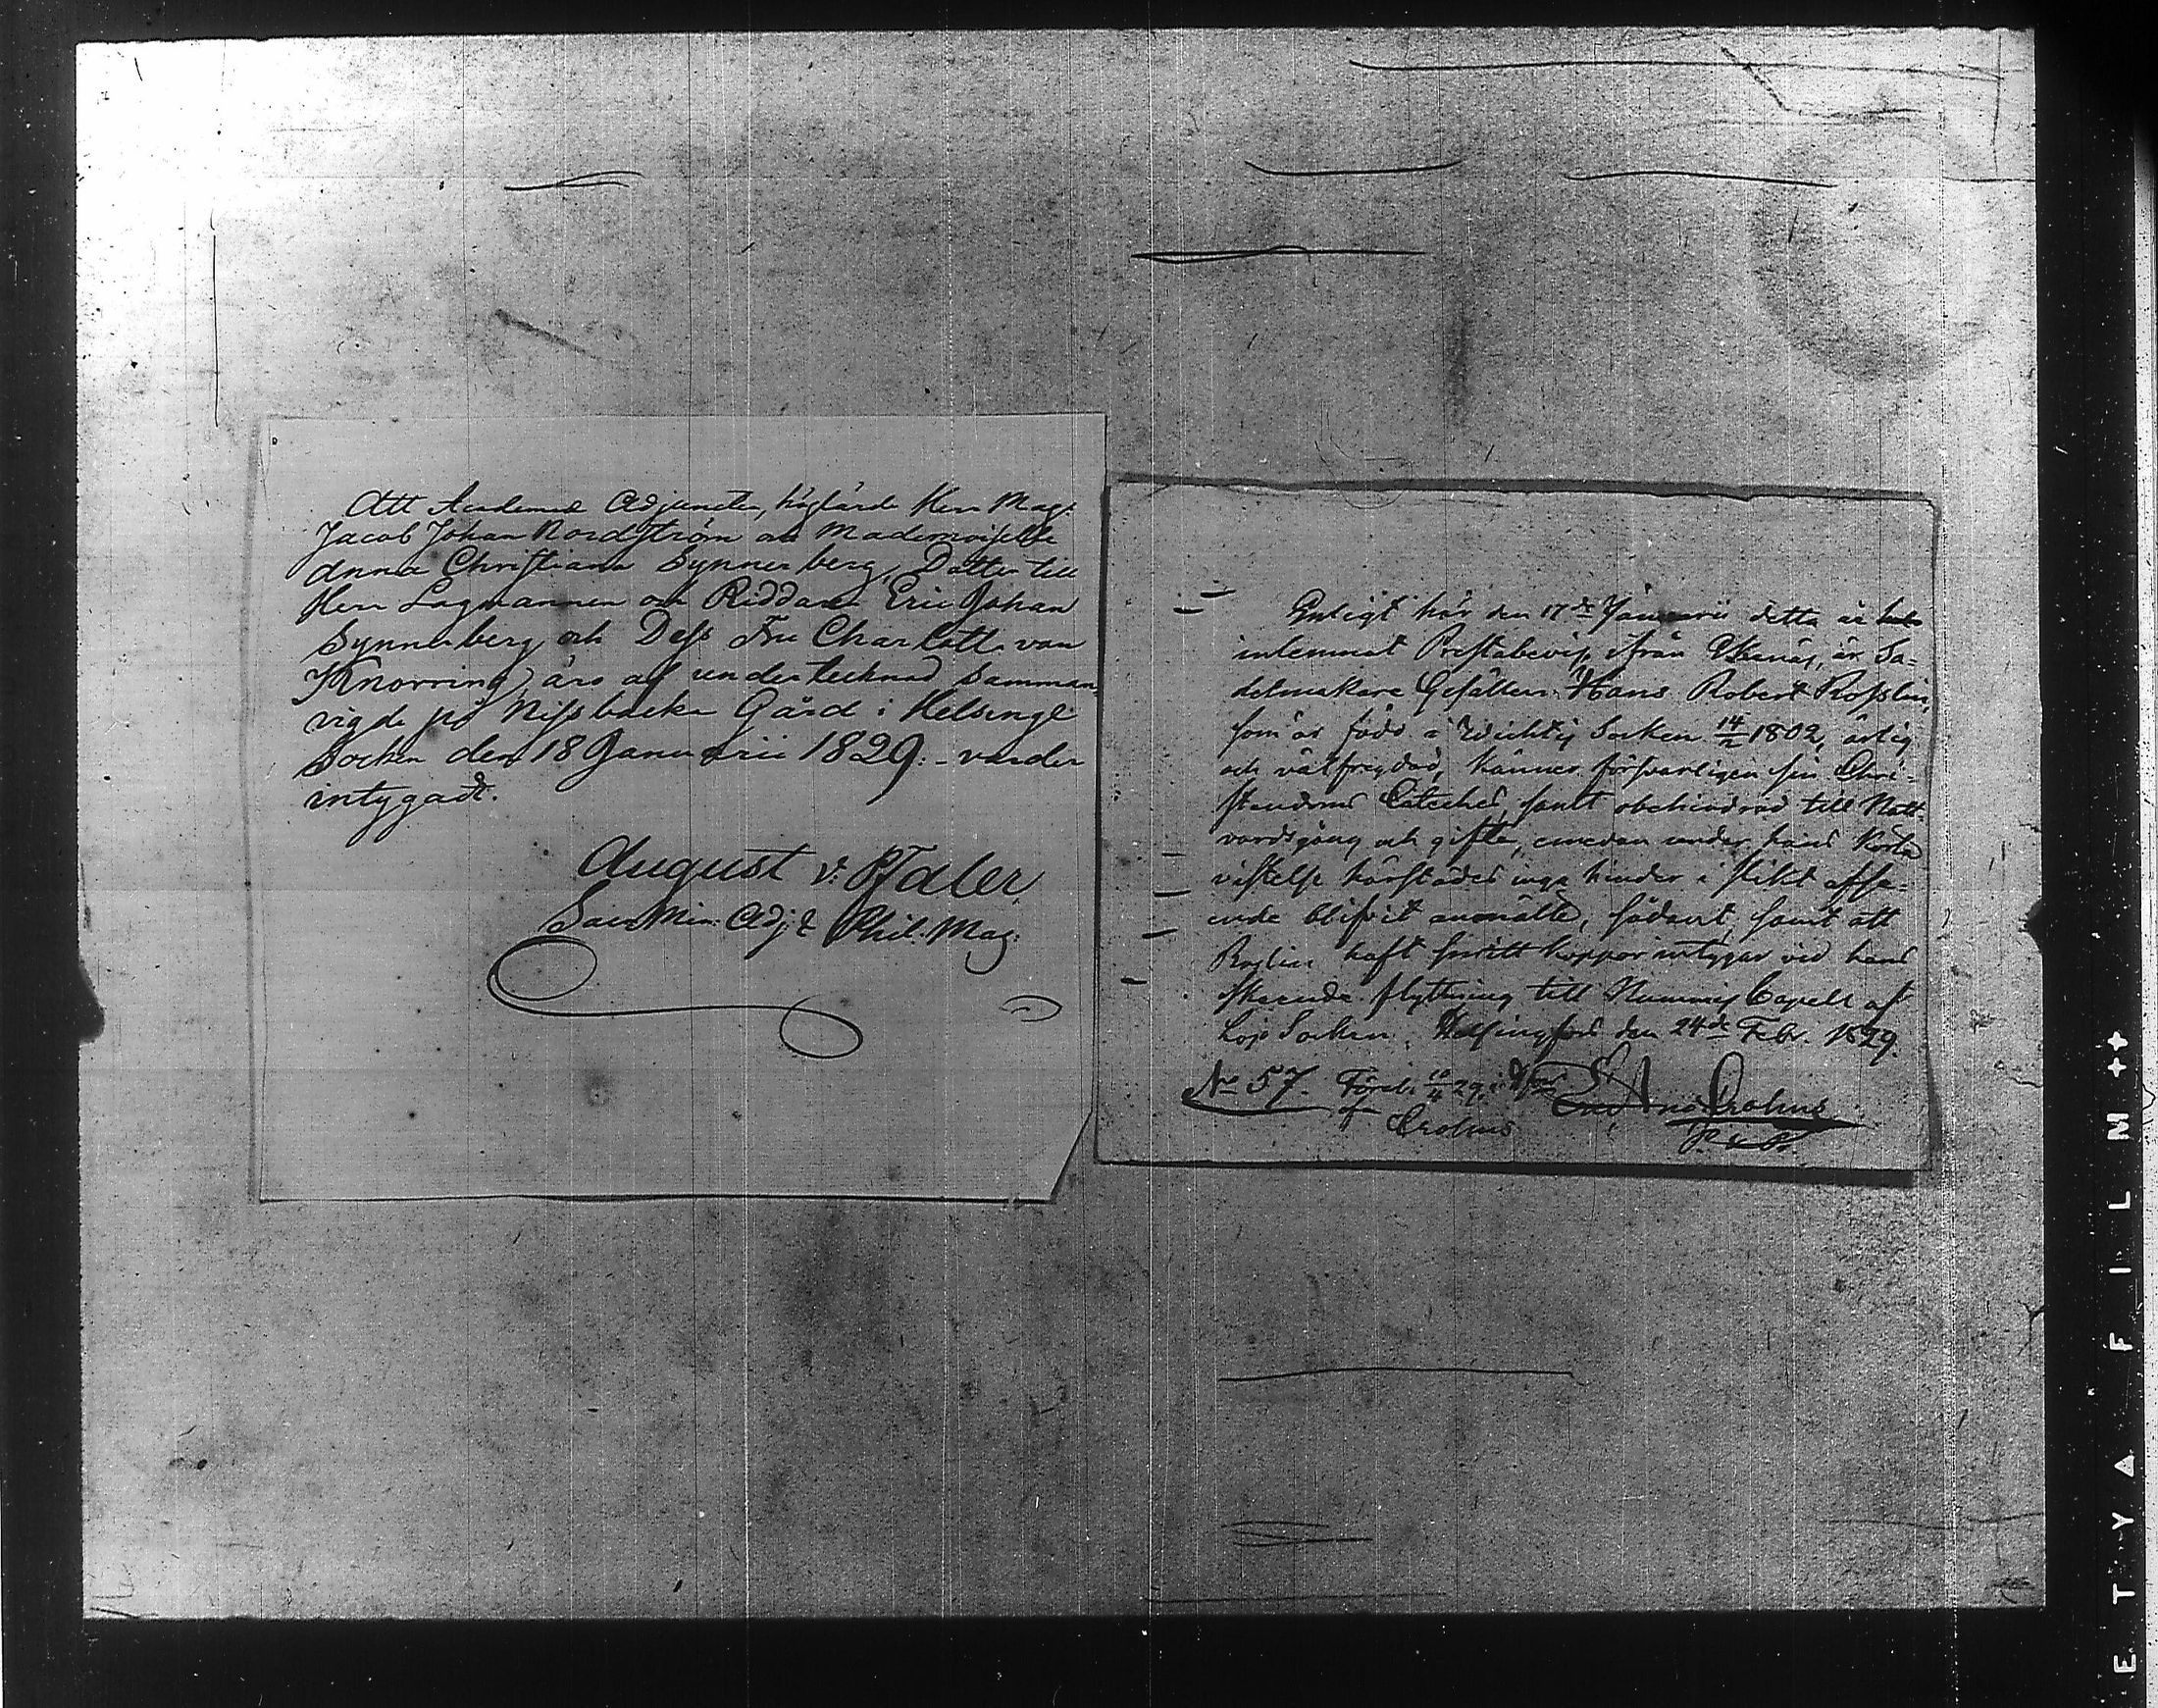 Att Academie Adjuncten, höglärde Herr Mag:
Jacob Johan Nordström och Mademoiselle
Anna Christiana Synnerberg, Dotter till
Herr Lagmannen och Riddaren Eric Johan
Synnerberg och Dess Fru Charlotta von
Knorring, äro af undertecknad samman-
vigde på Nissbacka Gård i Helsinge
Socken den 18 Januarii 1829. - varder
intygadt.
August v: Pfaler
Sacr. Min: Adj: & Phil. Mag:
Enligt här den 17de Januarii detta år
inlemnat Prestabevis ifrån Ekenäs, är Sa-
delmakare Gesällen Hans Robert Rosslin,
som är född i Wichtis Socken 14/2 1802, ärlig
och välfregdad, känner försvarligen sin Chri-
stendoms Cateches, samt obehindrad till Natt-
vardsgång och gifte, emedan under hans korta
vistelse härstädes inga hinder i slikt afse-
ende blifvit anmälte, sådant, samt att
Roslin haft koppor intygar vid hans
skeende flyttning till Nummis Capell af
Lojo Socken. Helsingfors den 24de Febr. 1829.
No 57. 10/4 29.
Crohns
Crohns